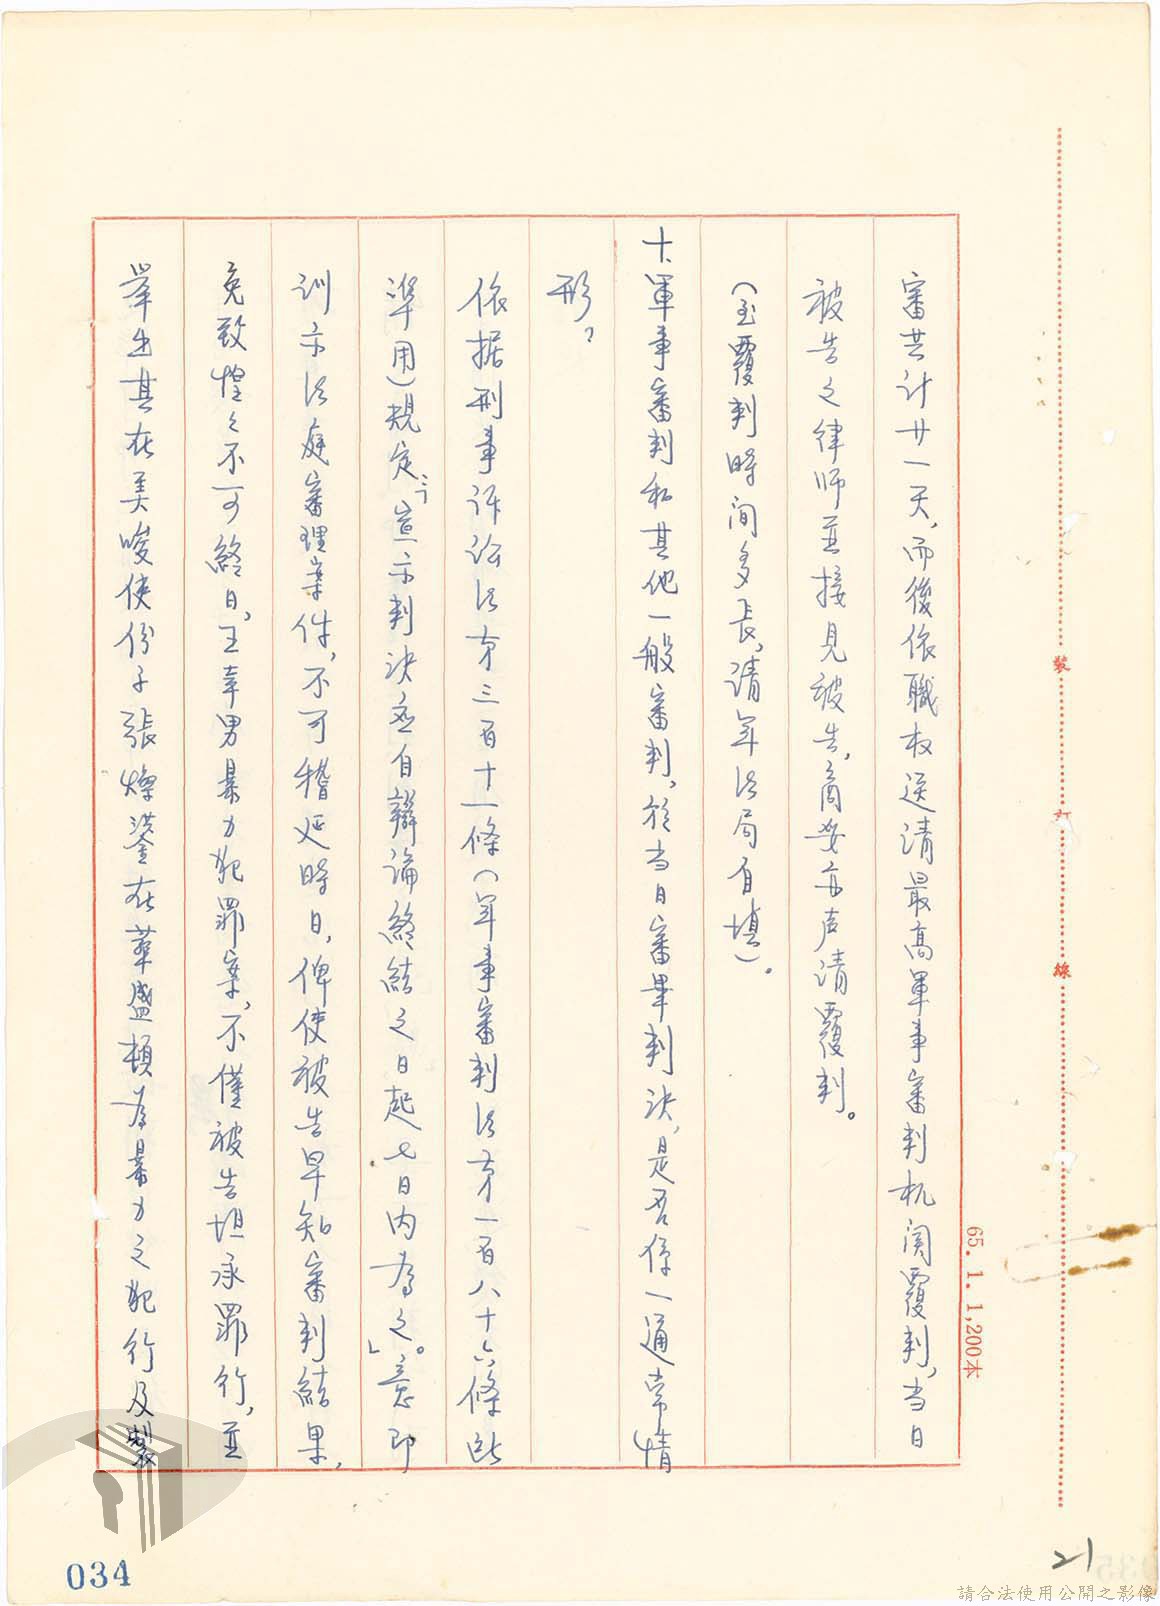 審共计廿一天，而後依職权送请最高軍事審判机関覆判，当日
被告之律师並接見被告，商妥亦声请覆判。
（至覆判時间多長，请军法局自填）。
十、軍事審判和其他一般審判，於当日審畢判决，是否係一通常情
形？
依据刑事诉讼法第三百十一條（军事審判法第一百八十六條此
準用）規定：「宣示判决应自辯論終結之日起七日內為之。」意即
训示法庭審理案件，不可稽延時日，俾使被告早知審判結果，
免致惶之不可終日，王幸男暴力犯罪案，不僅被告坦承罪行，並
举出其在美唆使份子張燦鍙在華盛頓為暴力之犯行及製
裝
訂
線
65. 1. 1,200本
034
21
請合法使用公開之影像